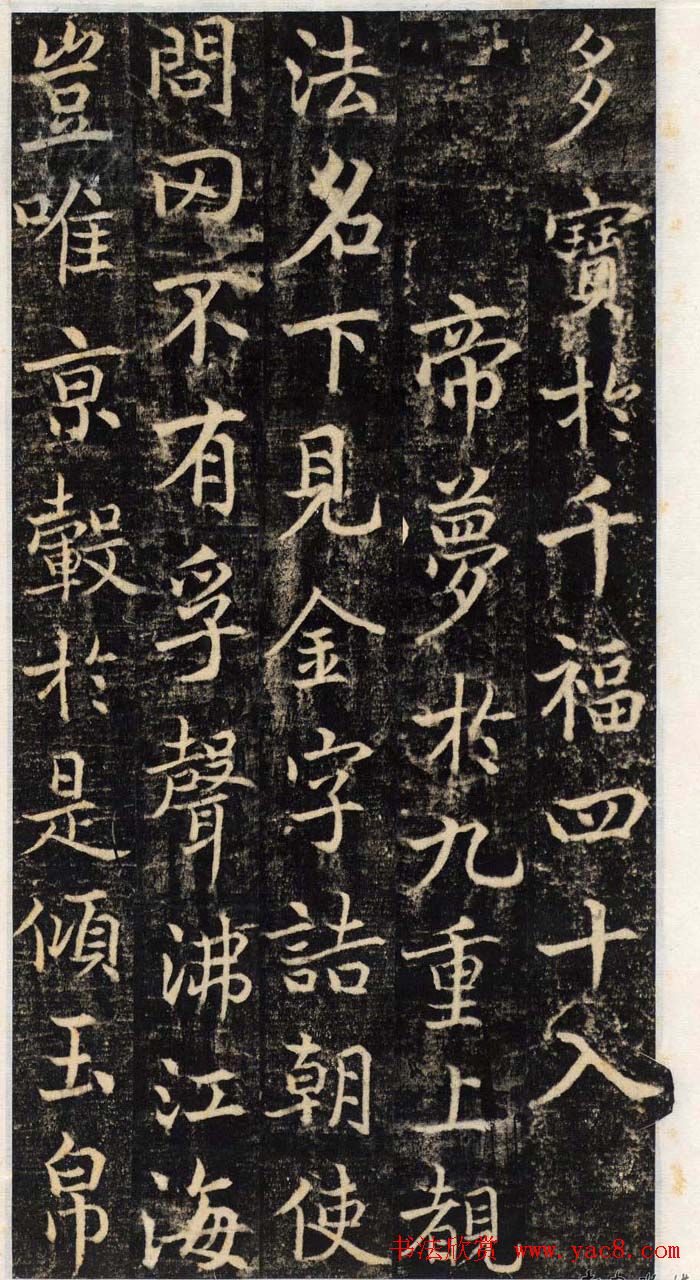 多寶於千福四十入
帝夢於九重上覩
法名下見金字詰朝使
問罔不有孚聲沸江海
豈唯京轂於是傾玉帛
书法欣赏 www.yac8.com